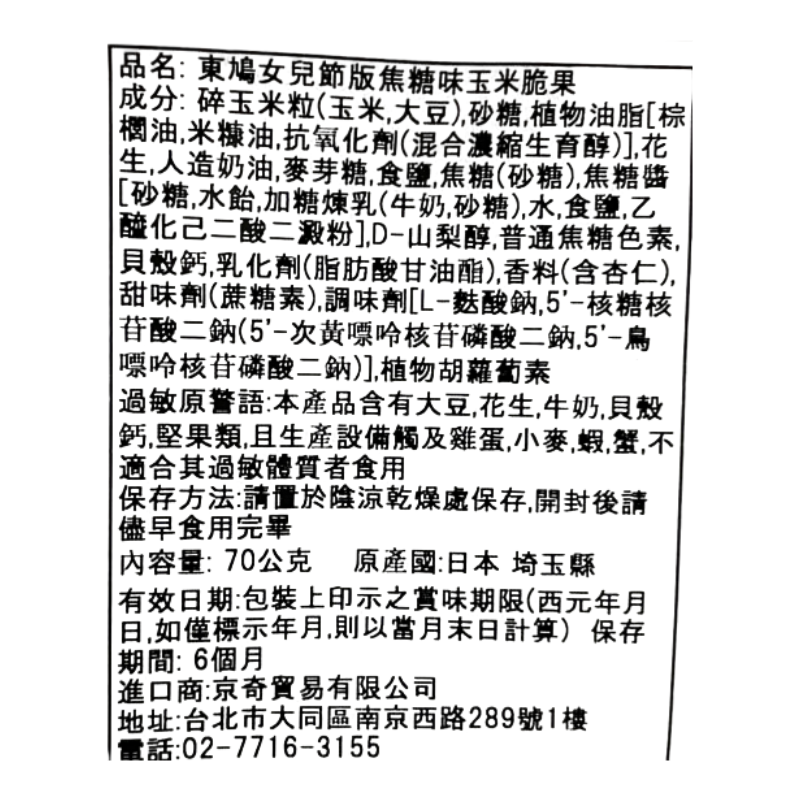 品名: 東鳩女兒節版焦糖味玉米脆果
成分: 碎玉米粒(玉米,大豆),砂糖,植物油脂[棕
櫚油,米糠油,抗氧化劑(混合濃縮生育醇)],花
生,人造奶油,麥芽糖,食鹽,焦糖(砂糖),焦糖醬
[砂糖,水飴,加糖煉乳(牛奶,砂糖),水,食鹽,乙
醯化己二酸二澱粉],D-山梨醇,普通焦糖色素,
貝殼鈣,乳化劑(脂肪酸甘油酯),香料(含杏仁),
甜味劑(蔗糖素),調味劑[L-麩酸鈉,5'-核糖核
苷酸二鈉(5'-次黃嘌呤核苷磷酸二鈉,5'-鳥
嘌呤核苷磷酸二鈉)],植物胡蘿蔔素
過敏原警語:本產品含有大豆,花生,牛奶,貝殼
鈣,堅果類,且生產設備觸及雞蛋,小麥,蝦,蟹,不
適合其過敏體質者食用
保存方法:請置於陰涼乾燥處保存,開封後請
儘早食用完畢
內容量: 70公克 原產國:日本 埼玉縣
有效日期:包裝上印示之賞味期限(西元年月
日,如僅標示年月,則以當月末日計算) 保存
期間: 6個月
進口商:京奇貿易有限公司
地址:台北市大同區南京西路289號1樓
電話:02-7716-3155